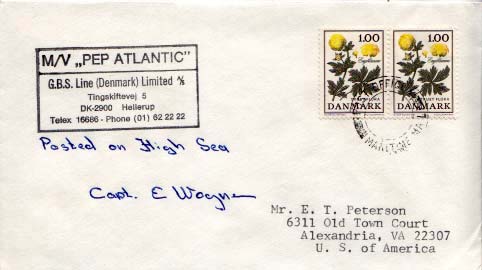 M/V „PEP ATLANTIC"
G.B.S. Line (Denmark) Limited A/S
Tingskiftevej 5
DK-2900 Hellerup
Telex 16686 - Phone (01) 62 22 22
Posted on High Sea
Capt. E Wagner
1.00 1.00
DANMARK DANMARK
MARITIME MAIL
Mr. E. T. Peterson
6311 Old Town Court
Alexandria, VA 22307
U. S. of America